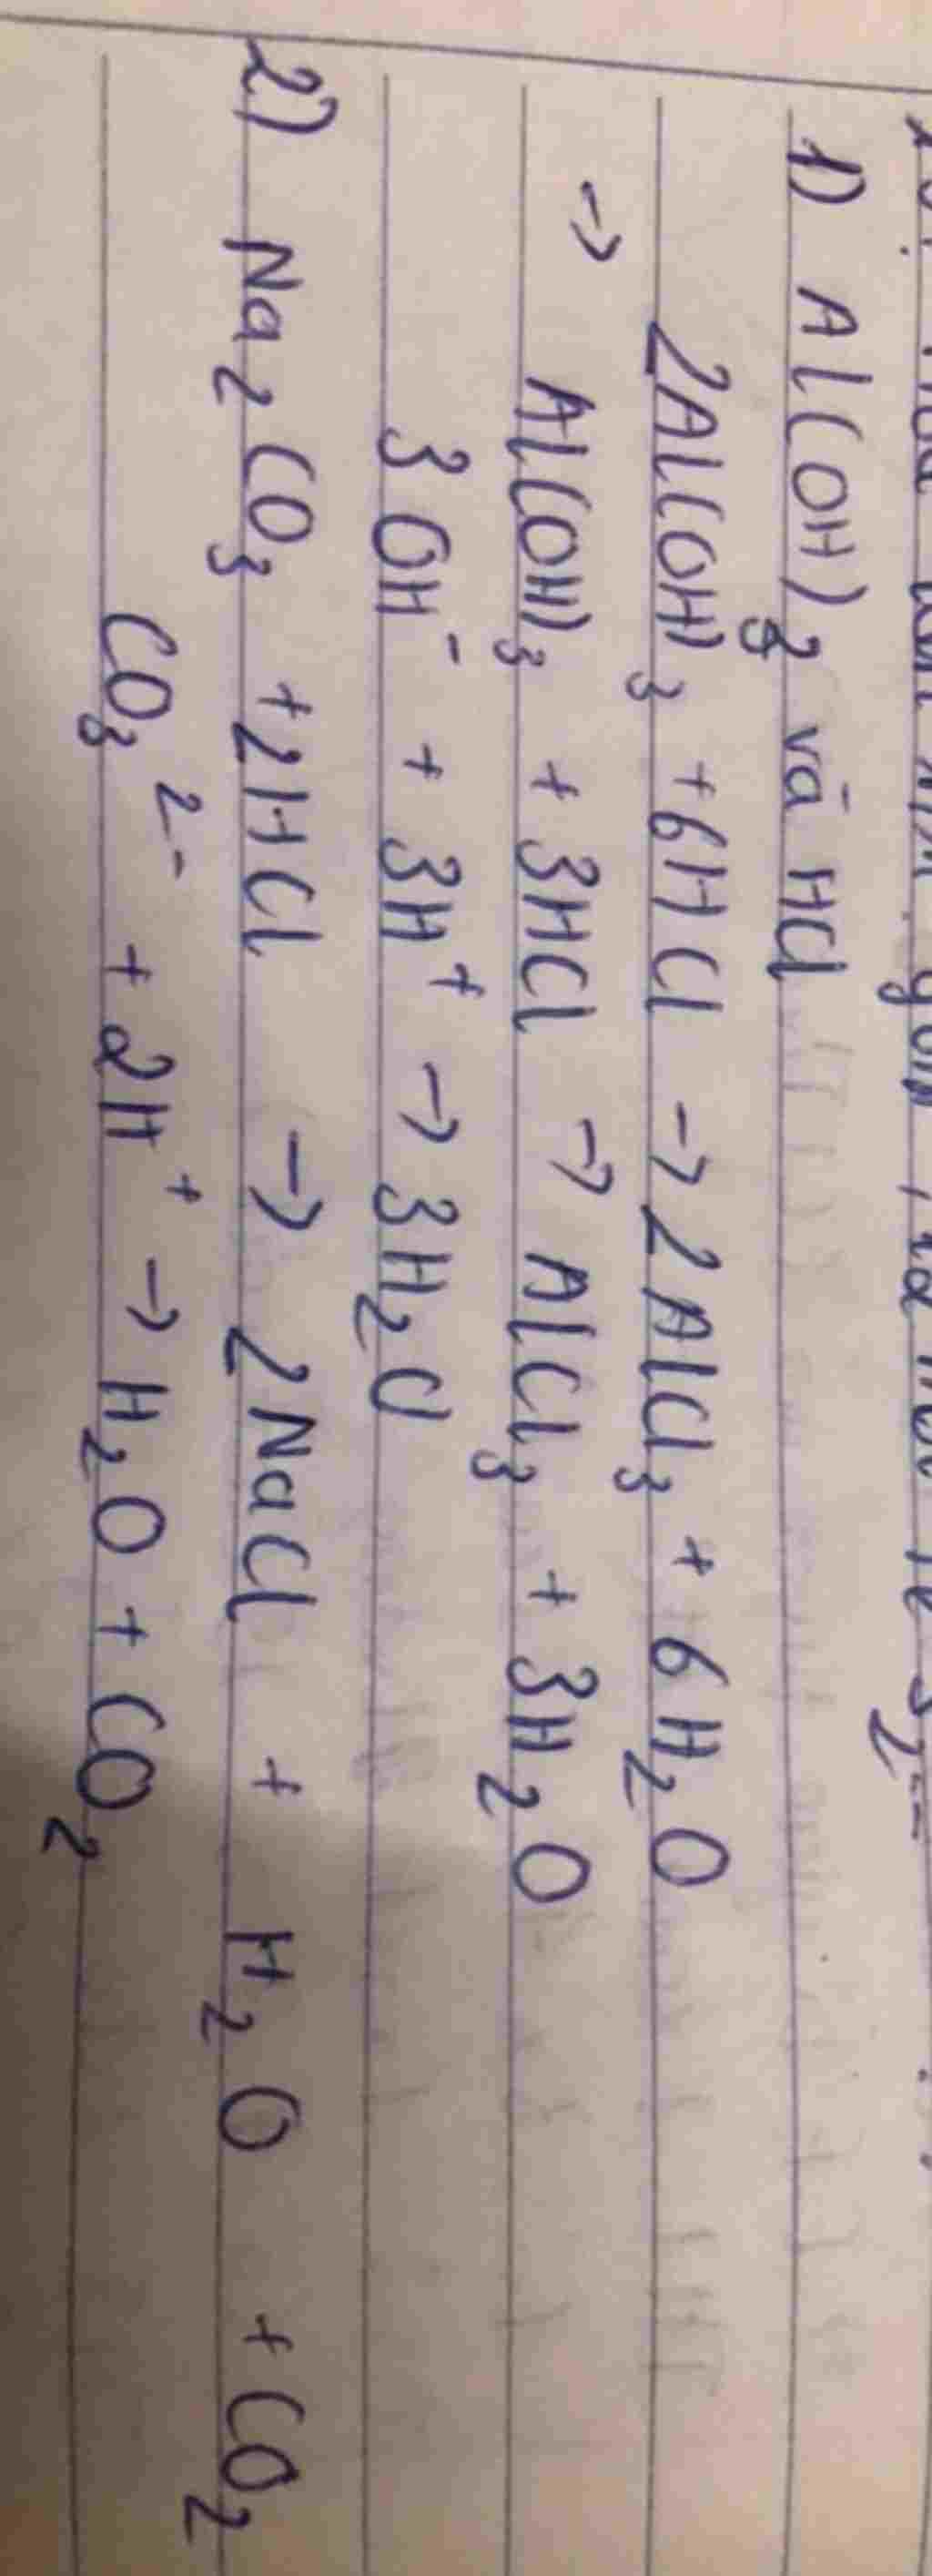 1) Al(OH)3 và HCl
2Al(OH)3 + 6HCl → 2AlCl3 + 6H2O
→ Al(OH)3 + 3HCl → AlCl3 + 3H2O
3OH⁻ + 3H⁺ → 3H2O
2) Na2CO3 + 2HCl → 2NaCl + H2O + CO2
CO3²⁻ + 2H⁺ → H2O + CO2